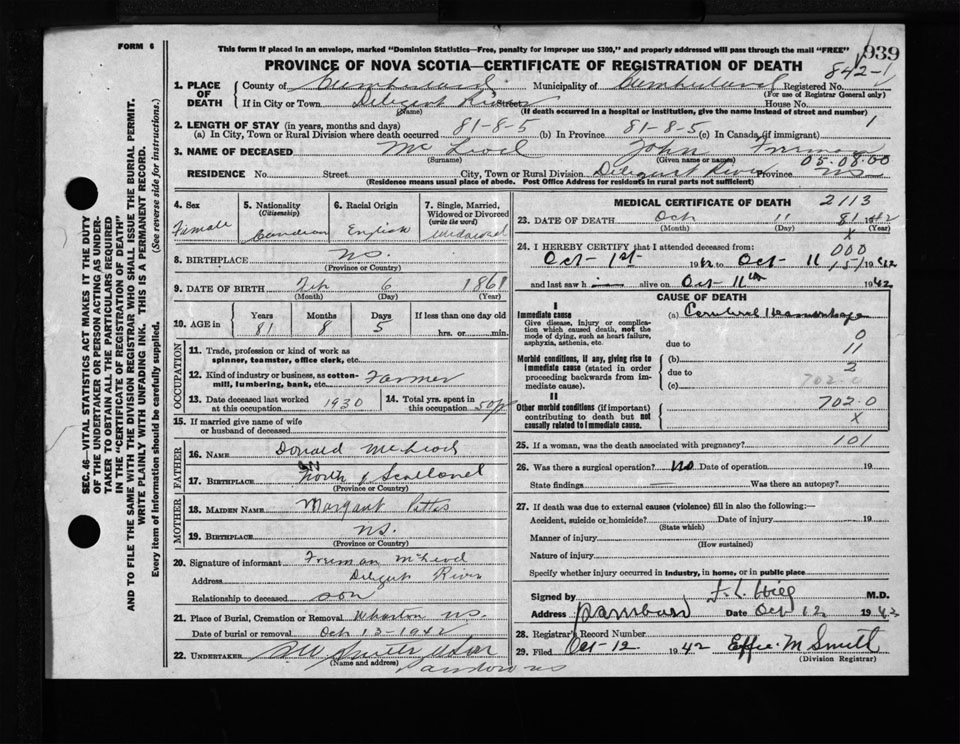 FORM 6
This form if placed in an envelope, marked "Dominion Statistics—Free, penalty for improper use $300," and properly addressed will pass through the mail "FREE"
939
PROVINCE OF NOVA SCOTIA—CERTIFICATE OF REGISTRATION OF DEATH
842-1
1. PLACE OF DEATH
County of Cumberland Municipality of Cumberland Registered No.
(For use of Registrar General only)
If in City or Town Diligent River Street House No.
(Name) (If death occurred in hospital or institution, give the name instead of street and number)
2. LENGTH OF STAY (in years, months and days)
(a) In City, Town or Rural Division where death occurred 81-8-5 (b) In Province 81-8-5 (c) In Canada (if immigrant) 1
3. NAME OF DECEASED McLeod John Freeman
(Surname) (Given name or names)
05.08.00
RESIDENCE No. Street City, Town or Rural Division Diligent River Province NS
(Residence means usual place of abode. Post Office Address for residents in rural parts not sufficient)
4. Sex Female
5. Nationality (Citizenship) Canadian
6. Racial Origin English
7. Single, Married, Widowed or Divorced (write the word) Widowed
8. BIRTHPLACE NS.
(Province or Country)
9. DATE OF BIRTH Feb 6 1861
(Month) (Day) (Year)
10. AGE in Years Months Days If less than one day old
81 8 5 hrs. or min.
OCCUPATION
11. Trade, profession or kind of work as spinner, teamster, office clerk, etc.
12. Kind of industry or business, as cotton-mill, lumbering, bank, etc. Farmer
13. Date deceased last worked at this occupation 1930
14. Total yrs. spent in this occupation 50
15. If married give name of wife or husband of deceased
FATHER
16. Name Donald McLeod
17. Birthplace North Scotland
(Province or Country)
MOTHER
18. Maiden Name Margaret
19. Birthplace NS.
(Province or Country)
20. Signature of informant Freeman McLeod
Address Diligent River
Relationship to deceased son
21. Place of Burial, Cremation or Removal Wharton NS.
Date of burial or removal Oct 13-1942
22. UNDERTAKER
(Name and address)
MEDICAL CERTIFICATE OF DEATH 2113
23. DATE OF DEATH Oct 11 81 1942
(Month) (Day) x (Year)
24. I HEREBY CERTIFY that I attended deceased from: 000
Oct-1st 1942 to Oct-11 1942
151
and last saw h alive on Oct-11th 1942
CAUSE OF DEATH
I
Immediate cause
Give disease, injury or complication which caused death, not the mode of dying, such as heart failure, asphyxia, asthenia, etc.
(a) Cerebral Hemorrhage
0
due to 11
Morbid conditions, if any, giving rise to immediate cause (stated in order proceeding backwards from immediate cause).
(b) 2
due to
(c) 702.0
II
Other morbid conditions (if important) contributing to death but not causally related to immediate cause.
702.0
x
25. If a woman, was the death associated with pregnancy? 101
26. Was there a surgical operation? no Date of operation 19
State findings Was there an autopsy?
27. If death was due to external causes (violence) fill in also the following:—
Accident, suicide or homicide? Date of injury 19
(State which)
Manner of injury
(How sustained)
Nature of injury
Specify whether injury occurred in industry, in home, or in public place
Signed by M.D.
Address Parrsboro Date Oct 12 1942
28. Registrar's Record Number
29. Filed Oct-12 1942 Effie M Smith
(Division Registrar)
SEC. 46—VITAL STATISTICS ACT MAKES IT THE DUTY
OF THE UNDERTAKER OR PERSON ACTING AS UNDER-
TAKER TO OBTAIN ALL THE PARTICULARS REQUIRED
IN THE "CERTIFICATE OF REGISTRATION OF DEATH"
AND TO FILE THE SAME WITH THE DIVISION REGISTRAR WHO SHALL ISSUE THE BURIAL PERMIT.
WRITE PLAINLY WITH UNFADING INK. THIS IS A PERMANENT RECORD.
Every item of Information should be carefully supplied. (See reverse side for instructions.)